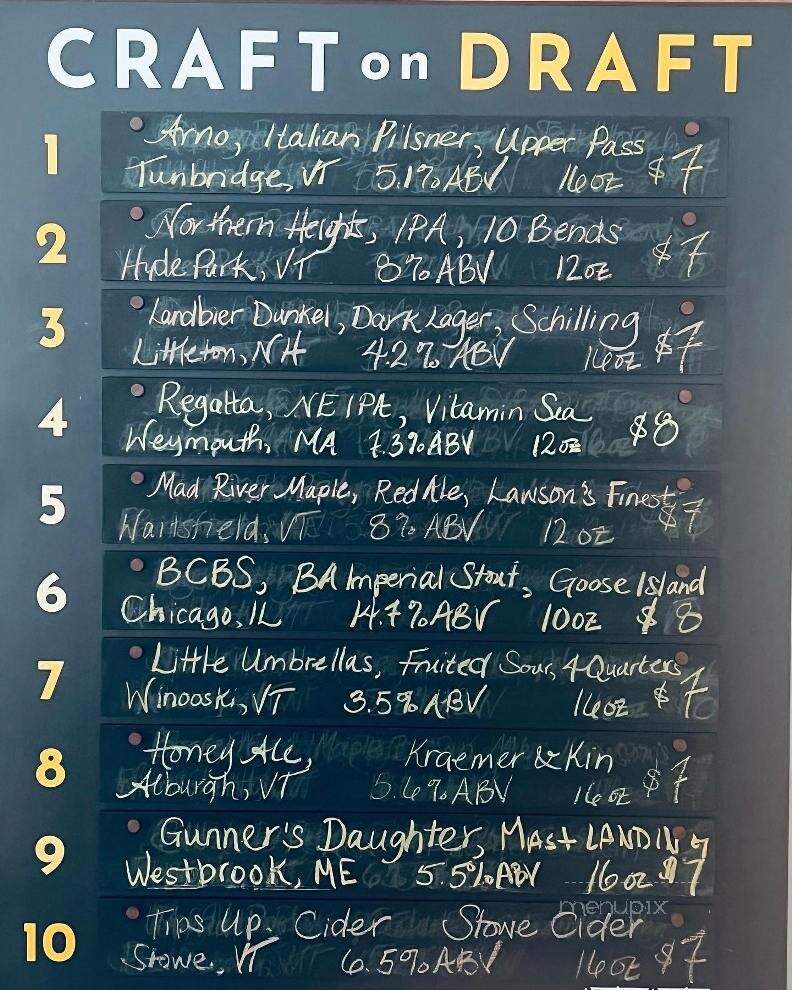 CRAFT on DRAFT
1
Arno, Italian Pilsner, Upper Pass
Tunbridge, VT 5.1% ABV 16oz $7
2
Northern Heights, IPA, 10 Bends
Hyde Park, VT 8% ABV 12oz $7
3
Landbier Dunkel, Dark Lager, Schilling
Littleton, NH 4.2% ABV 16oz $7
4
Regatta, NEIPA, Vitamin Sea
Weymouth, MA 7.3% ABV 12oz $8
5
Mad River Maple, Red Ale, Lawson's Finest
Waitsfield, VT 8% ABV 12oz $7
6
BCBS, BA Imperial Stout, Goose Island
Chicago, IL 14.7% ABV 10oz $8
7
Little Umbrellas, Fruited Sour, 4 Quarters
Winooski, VT 3.5% ABV 16oz $7
8
Honey Ale, Kraemer & Kin
Alburgh, VT 5.6% ABV 16oz $7
9
Gunner's Daughter, MAST LANDING
Westbrook, ME 5.5% ABV 16oz $7
menupix
10
Tips Up. Cider Stowe Cider
Stowe, VT 6.5% ABV 16oz $7